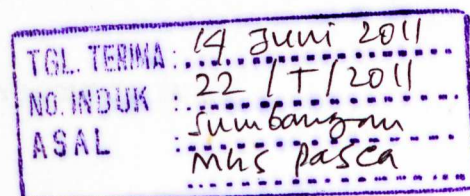 TGL. TERIMA : 14 Juni 2011
NO. INDUK : 22 / T / 2011
ASAL : Sumbangan
Mhs Pasca